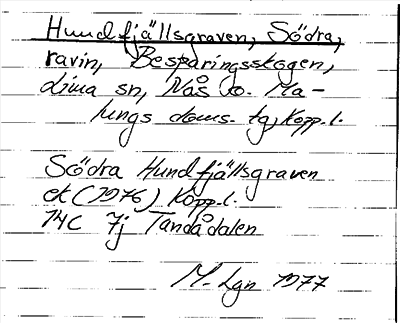 Hundfjällsgraven, Södra,
ravin, Besparingsskogen,
Lima sn, Nås o. Ma-
lungs doms. tg, Kopp. l.
Södra Hundfjällsgraven
ek (1976) Kopp. l.
14C 7j Tandådalen
M. Lgn 1977